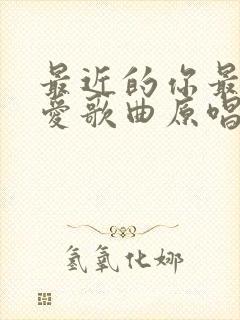 最近的你最
爱歌曲原唱
氢氧化娜